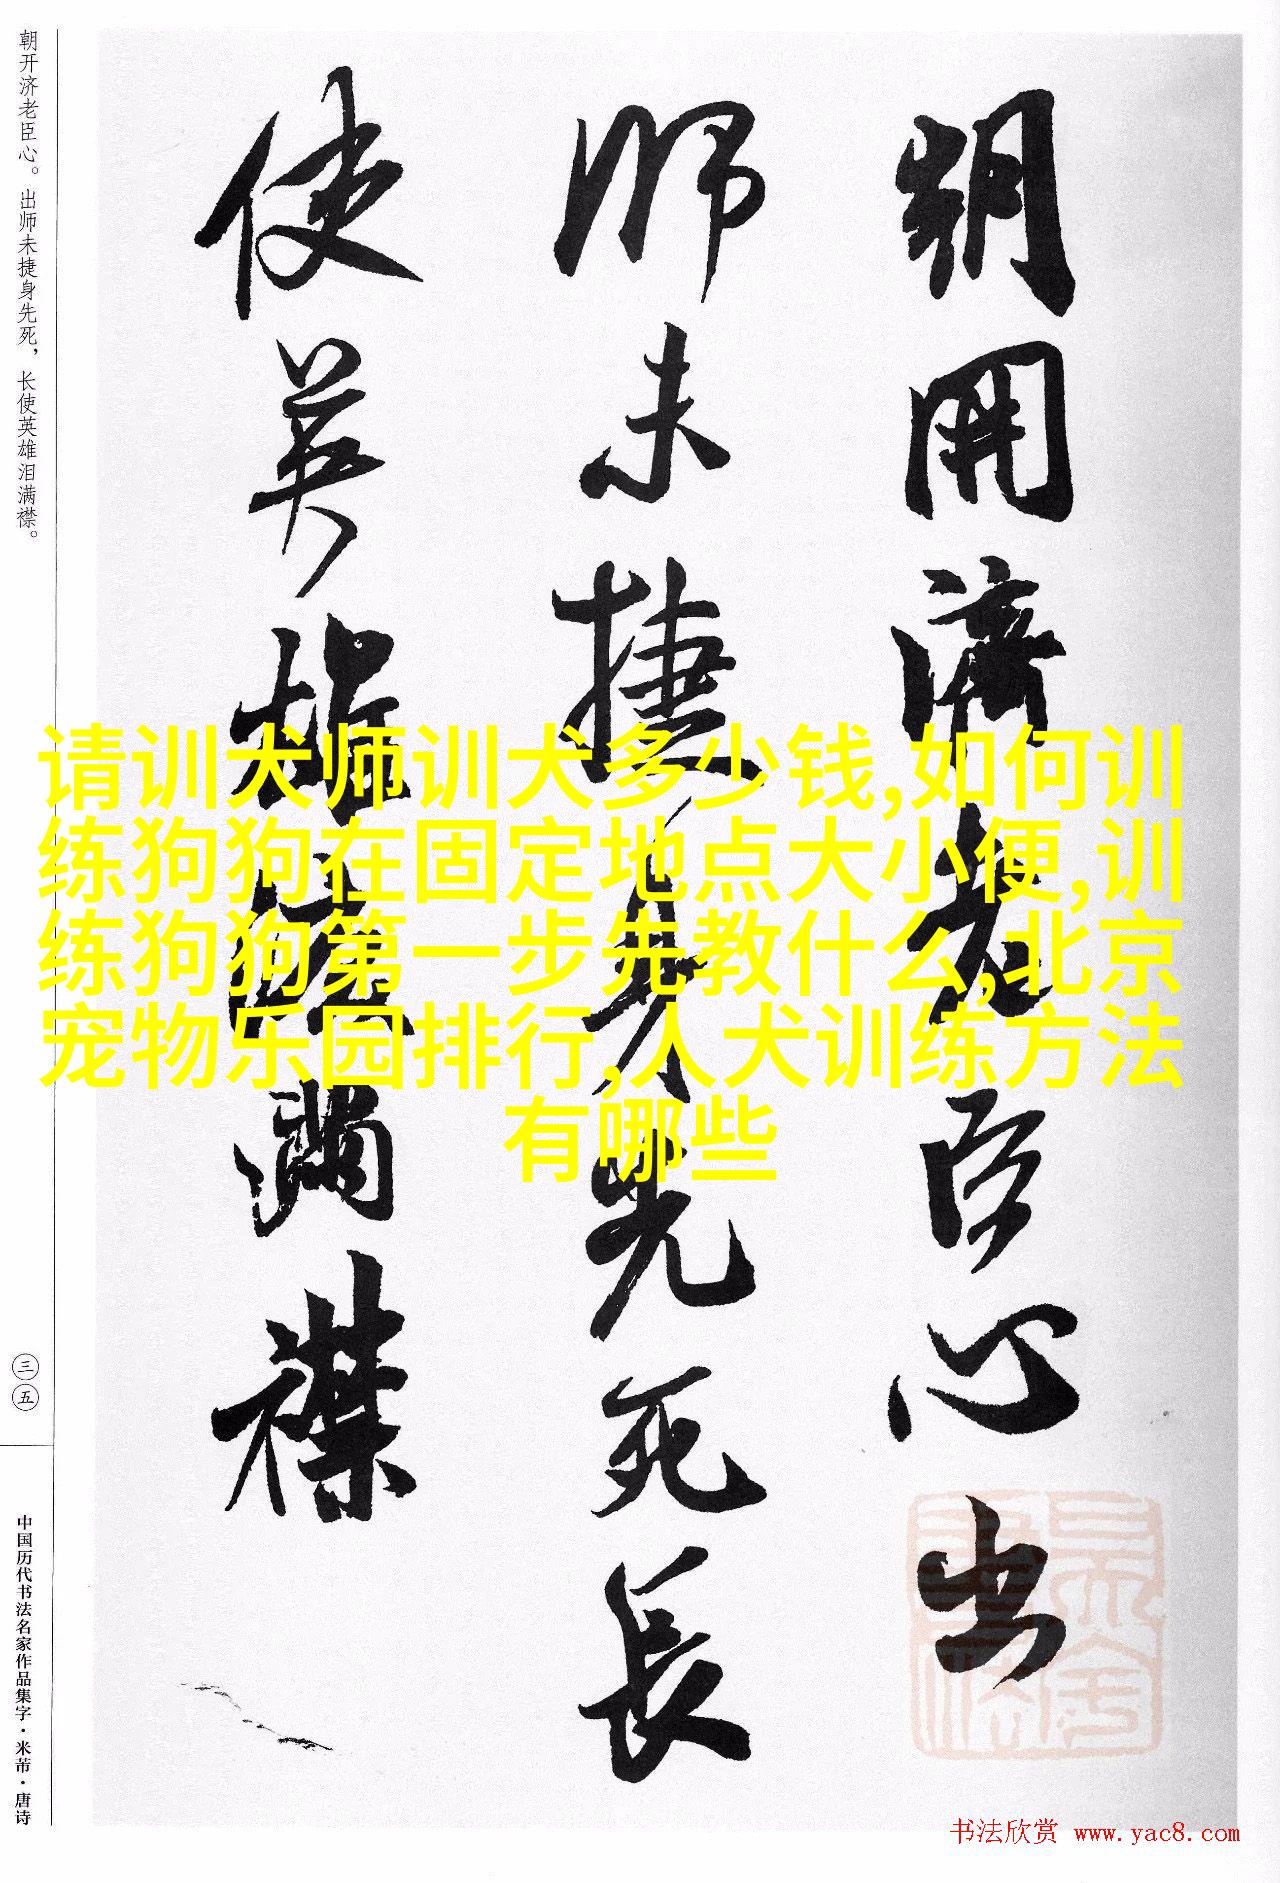 朝开济老臣心。出师未捷身先死，长使英雄泪满襟。
三五
中国历代书法名家作品集字·米芾·唐诗
朝開濟老臣心出
師未捷身先死長
使英雄淚滿襟
请训犬师训犬多少钱,如何训
练狗狗在固定地点大小便,训
练狗狗第一步先教什么,北京
宠物乐园排行,人犬训练方法
有哪些
书法欣赏 www.yac8.com